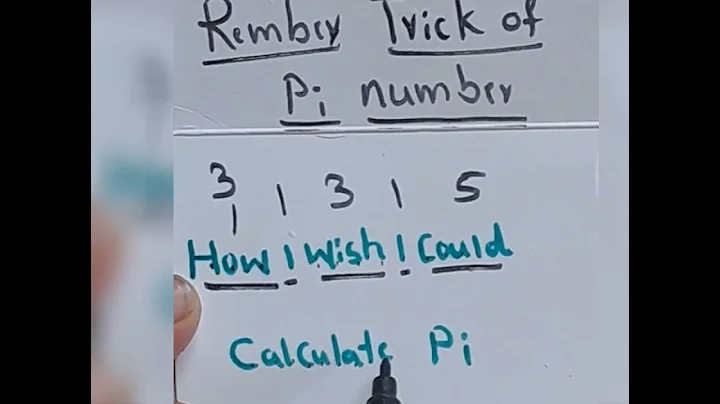 Rember Trick of
Pi number
3 1 3 1 5
How I Wish I Could
Calculate Pi